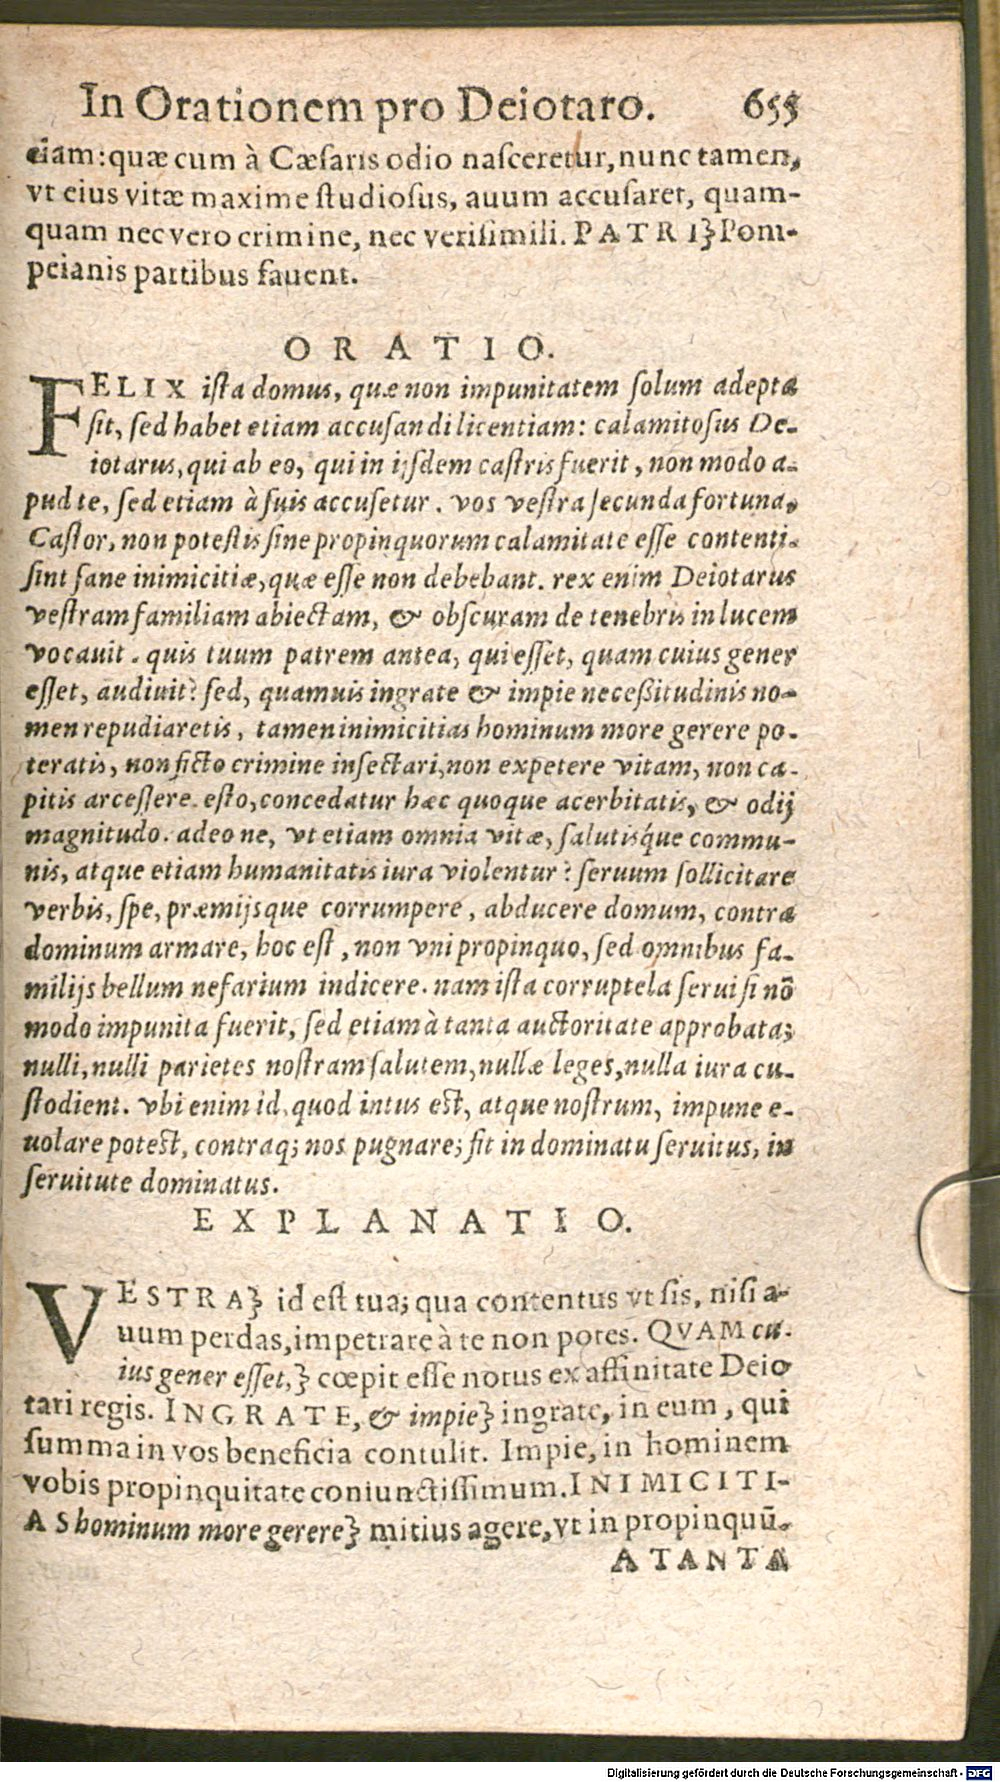 In Orationem pro Deiotaro. 655
eiam: quæ cum à Cæsaris odio nasceretur, nunc tamen,
vt eius vitæ maxime studiosus, auum accusaret, quam-
quam nec vero crimine, nec verisimili. PATRI} Pom-
peianis partibus fauent.
ORATIO.
FELIX ista domus, quæ non impunitatem solum adepta
sit, sed habet etiam accusandi licentiam: calamitosus De-
iotarus, qui ab eo, qui in ijsdem castris fuerit, non modo a-
pud te, sed etiam à suis accusetur. vos vestra secunda fortuna,
Castor, non potestis sine propinquorum calamitate esse contenti.
sint sane inimicitiæ, quæ esse non debebant. rex enim Deiotarus
vestram familiam abiectam, & obscuram de tenebris in lucem
vocauit. quis tuum patrem antea, qui esset, quam cuius gener
esset, audiuit? sed, quamuis ingrate & impie necessitudinis no-
men repudiaretis, tamen inimicitias hominum more gerere po-
teratis, non ficto crimine insectari, non expetere vitam, non ca-
pitis arcessere. esto, concedatur hæc quoque acerbitatis, & odij
magnitudo. adeo ne, vt etiam omnia vitæ, salutisq́ue commu-
nis, atque etiam humanitatis iura violentur? seruum sollicitare
verbis, spe, præmijsque corrumpere, abducere domum, contra
dominum armare, hoc est, non vni propinquo, sed omnibus fa-
milijs bellum nefarium indicere. nam ista corruptela serui si nō
modo impunita fuerit, sed etiam à tanta auctoritate approbata;
nulli, nulli parietes nostram salutem, nullæ leges, nulla iura cu-
stodient. vbi enim id, quod intus est, atque nostrum, impune e-
uolare potest, contraq; nos pugnare; fit in dominatu seruitus, in
seruitute dominatus.
EXPLANATIO.
VESTRA} id est tua; qua contentus vt sis, nisi a-
uum perdas, impetrare à te non potes. QVAM cu-
ius gener esset,} cœpit esse notus ex affinitate Deio
tari regis. INGRATE, & impie} ingrate, in eum, qui
summa in vos beneficia contulit. Impie, in hominem
vobis propinquitate coniunctissimum. INIMICITI-
AS hominum more gerere} mitius agere, vt in propinquū.
A TANTA
Digitalisierung gefördert durch die Deutsche Forschungsgemeinschaft - DFG